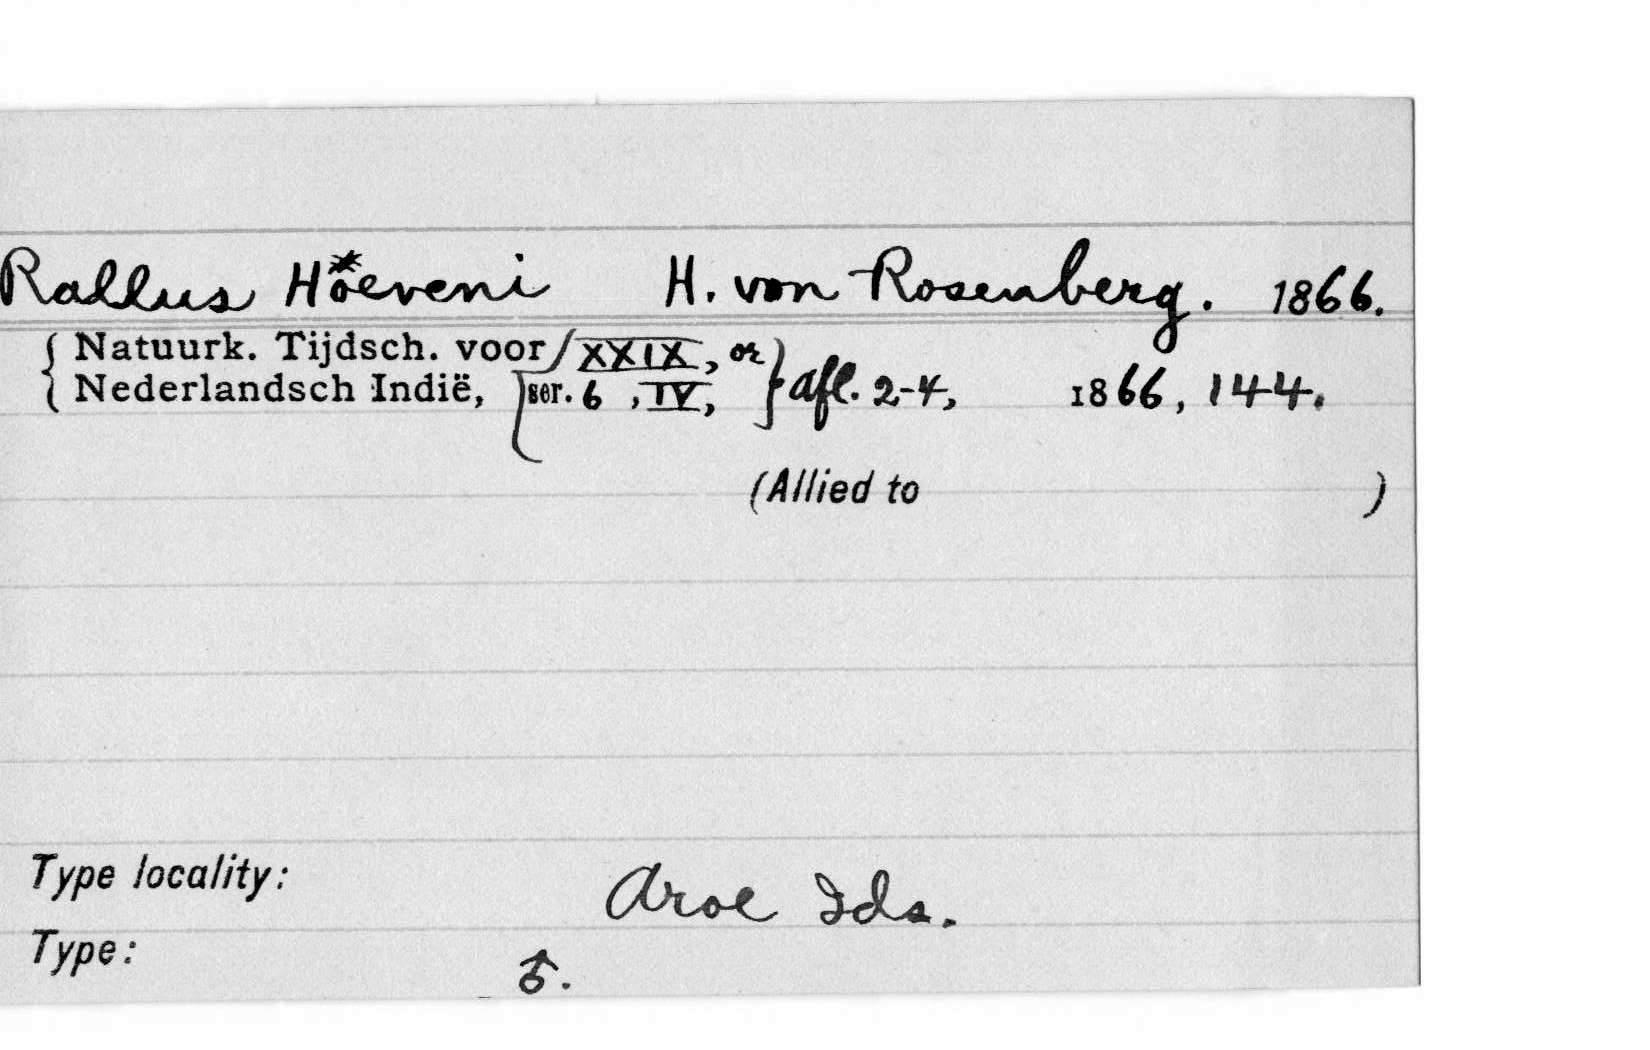 Rallus Hoeveni H. von Rosenberg. 1866.
{ Natuurk. Tijdsch. voor XXIX, or
{ Nederlandsch Indië, ser. 6, IV, } afl. 2-4, 1866, 144.
(Allied to )
Type locality: Aroe Ids.
Type: ♂.